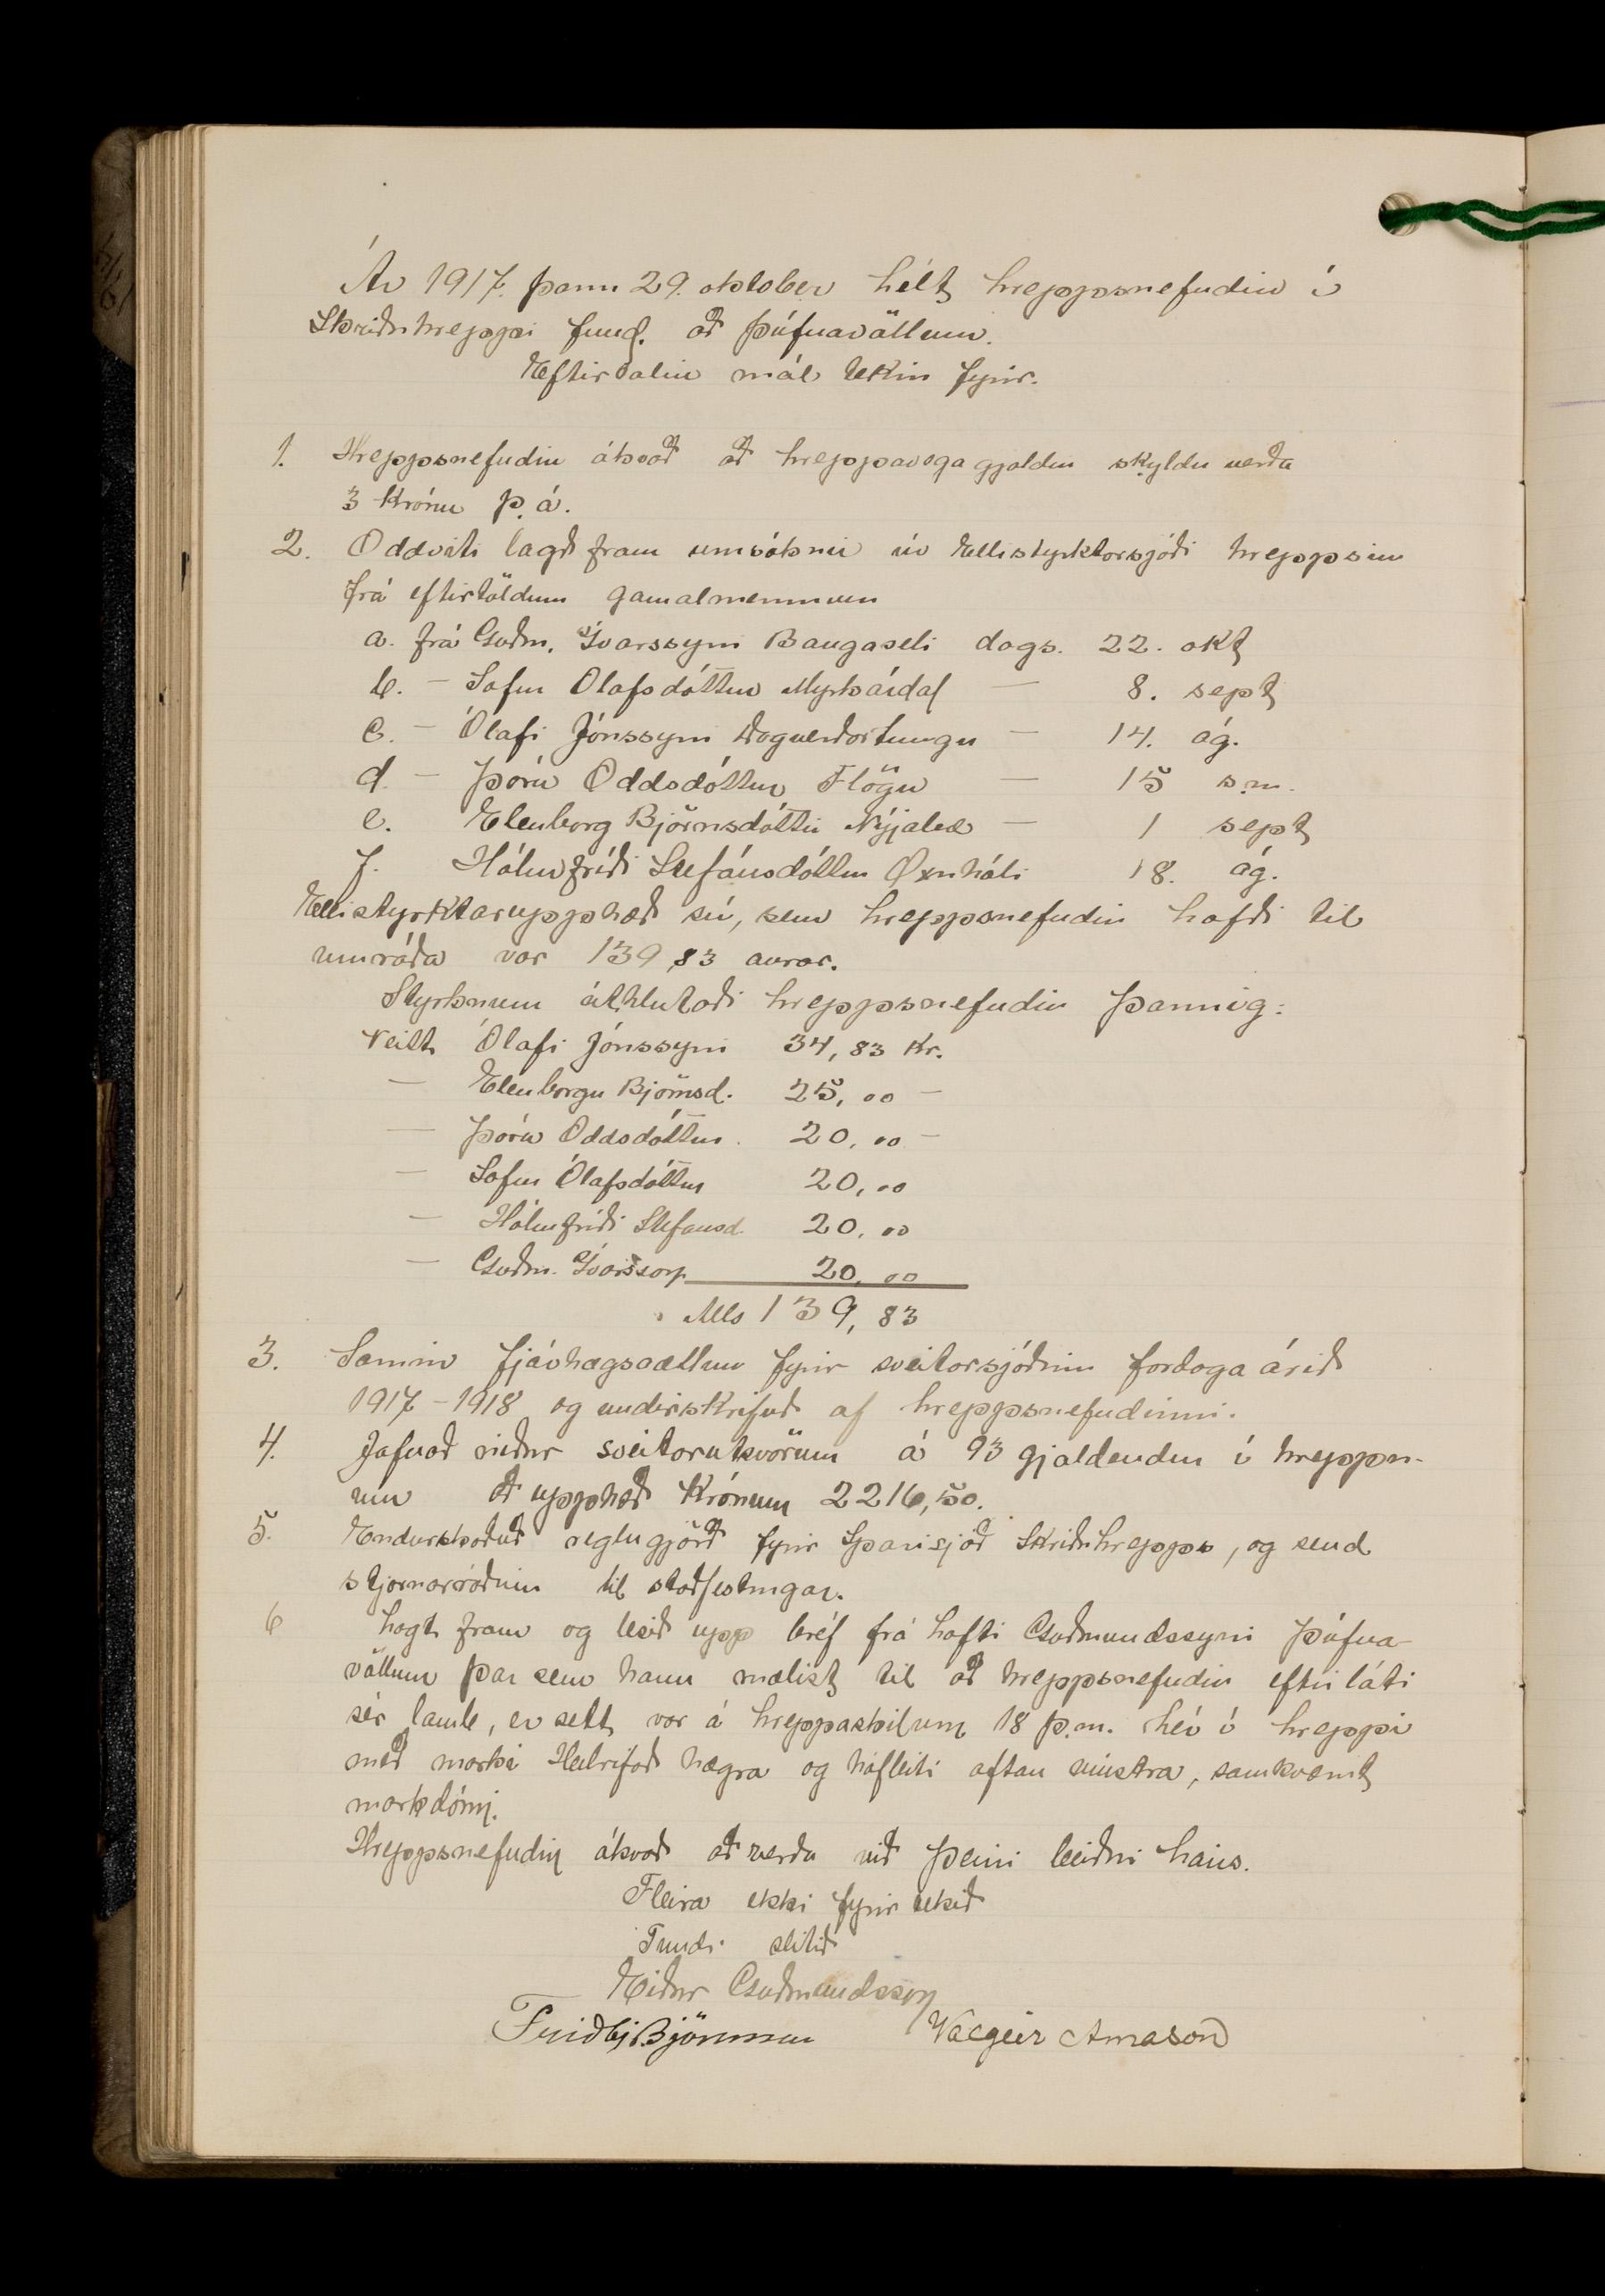 Ár 1917. þann 29. oktober hélt hreppsnefndin í
Skriðuhreppi fund. að Þúfnavöllum.
Eftirtalin mál tekin fyrir.
1. Hreppsnefndin ákvað að hreppavegagjaldið skyldu verða
3 krónu þ. á.
2. Oddviti lagði fram umsóknir úr Ellistyrktarsjóði hreppsins
frá eftirtöldum gamalmennum
a. frá Guðm. Ívarssyni Baugaseli dags. 22. okt
b. — Sofíu Olafsdóttur Myrkárdal — 8. sept
c. — Ólafi Jónssyni Dagverðartungu — 14. ág.
d. — Þóru Oddsdóttur Flögu — 15 s.m.
e. Elenborg Björnsdóttir Nýjabæ — 1 sept
f. Hólmfríði Stefánsdóttur Öxnhóli 18. ág.
Ellistyrktarupphæð sú, sem hreppsnefndin hafði til
umráða var 139,83 aurar.
Styrknum úthlutaði hreppsnefndin þannig:
Veitt Ólafi Jónssyni 34,83 kr.
— Elenborgu Björnsd. 25,00 —
— Þóru Oddsdóttur. 20,00 —
— Sofíu Ólafsdóttur 20,00
— Hólmfríði Stefansd. 20,00
— Guðm. Ívarsson 20,00
Alls 139,83
3. Samin fjárhagsáætlun fyrir sveitarsjóðinn fardaga árið
1917-1918 og undirskrifuð af hreppsnefndinni.
4. Jafnað niður sveitarútsvörum á 93 gjaldendur í hreppn-
um að upphæð Krónum 2216,50.
5. Endurskoðuð reglugjörð fyrir Sparisjóð Skriðuhrepps, og send
stjórnarráðinu til staðfestingar.
6 Lagt fram og lesið upp bréf frá Lofti Guðmundssyni Þúfna-
völlum þar sem hann mælist til að hreppsnefndin eftirláti
sér lamb, er selt var á hreppaskilum 18 þ.m. hér í hreppi
með marki Heilrifað hægra og hófbiti aftan vinstra, samkvæmt
markdómi.
Hreppsnefndin ákvað að verða við þeirri beiðni hans.
Fleira ekki fyrir tekið
Fundi slitið
Eiður Guðmundsson
Friðbj Björnsson Valgeir Arnason